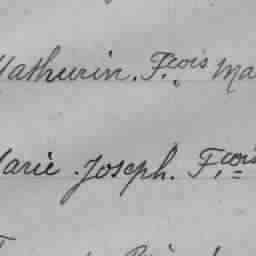 Mathurin. F.çois Ma
Marie. Joseph. F.çois